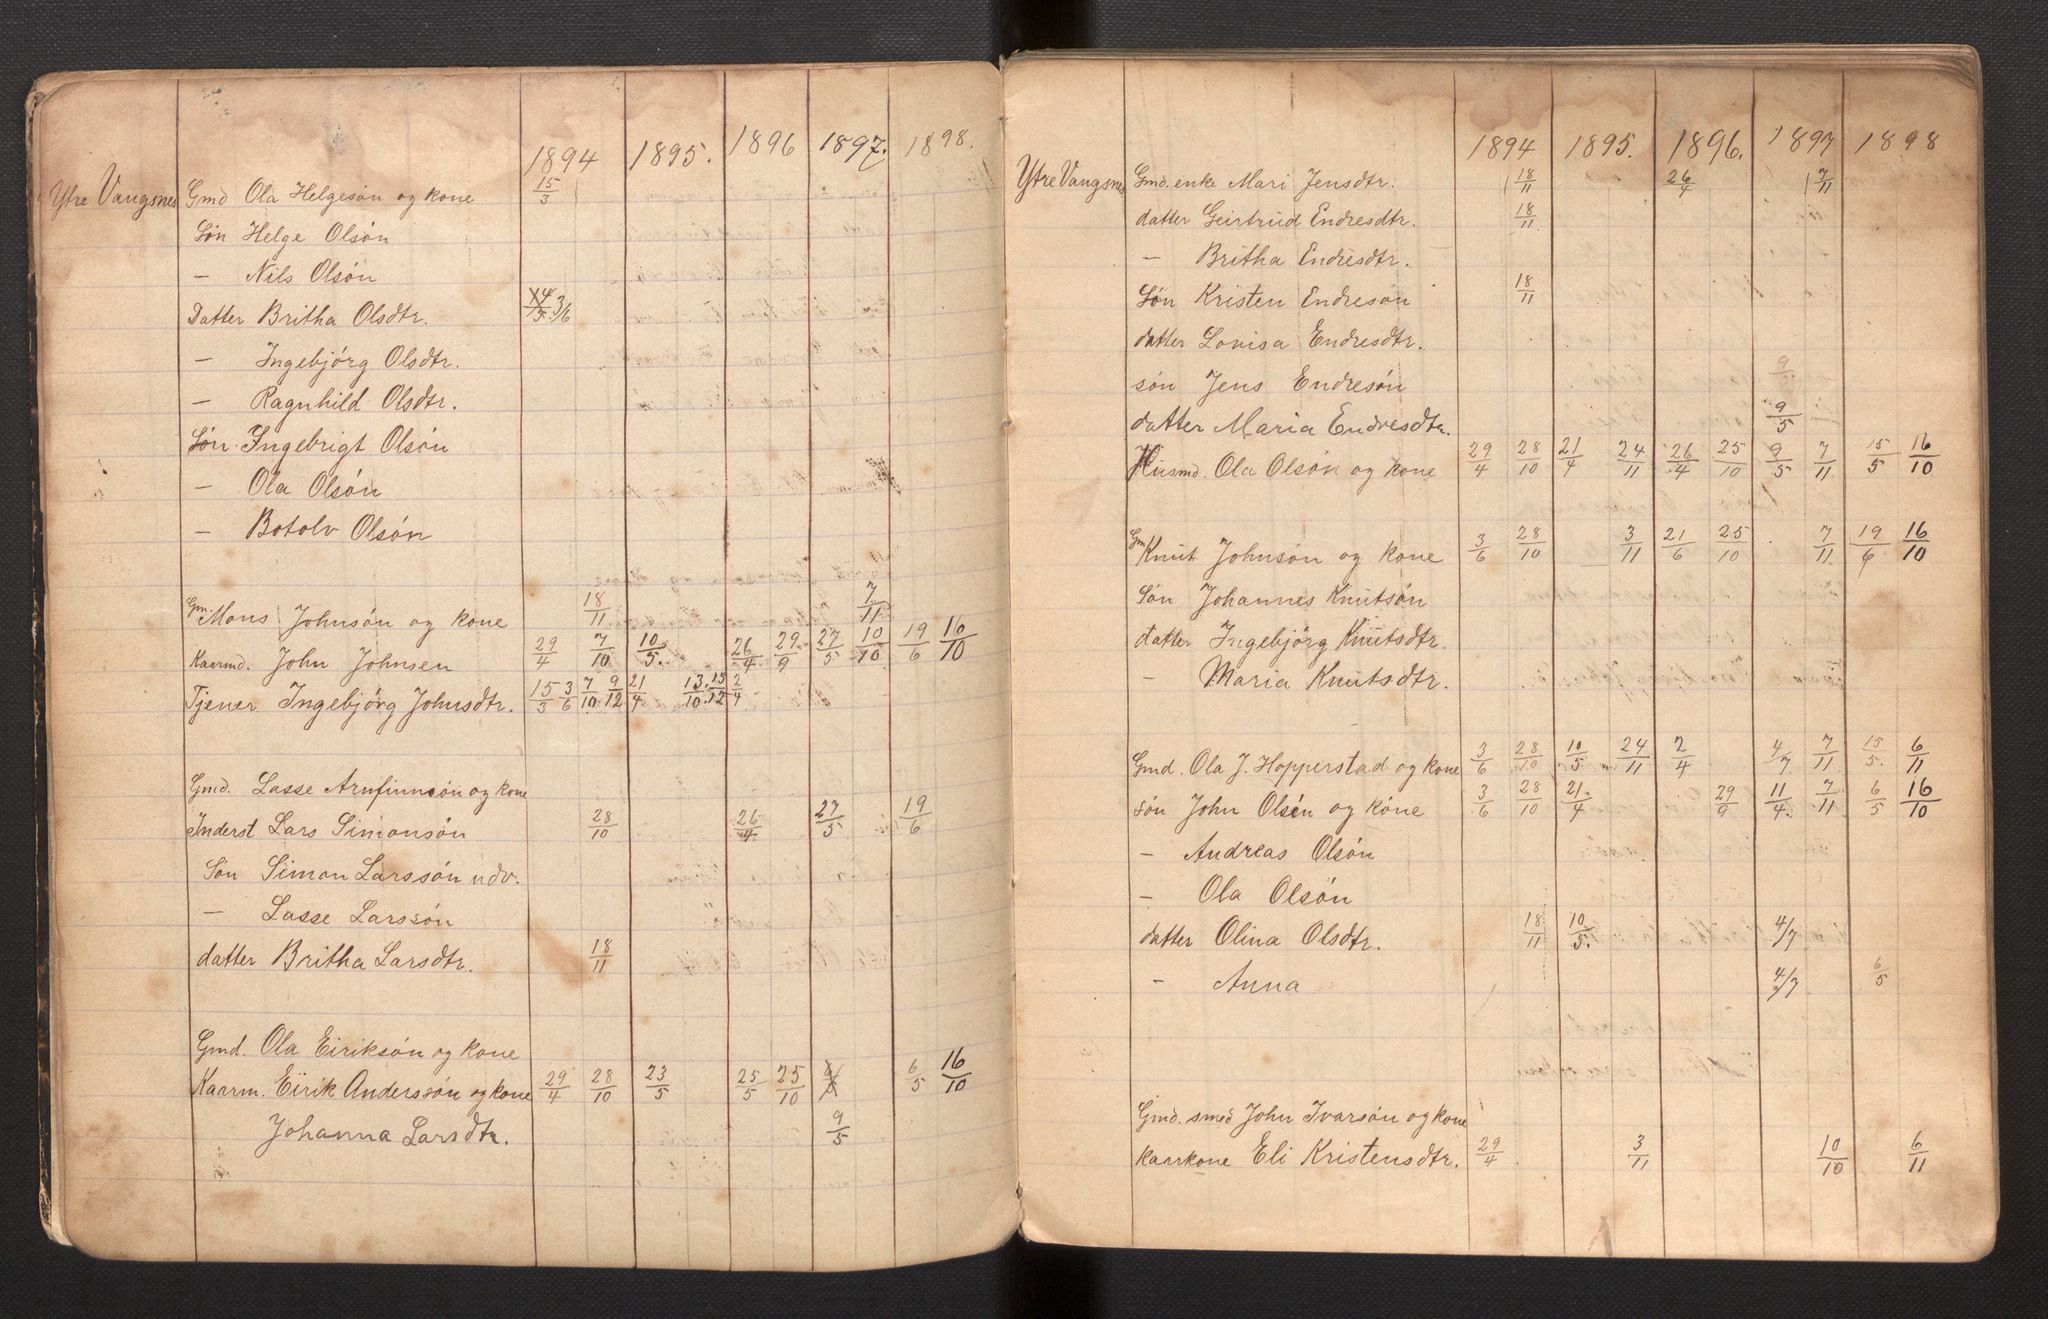 1894 1895. 1896 1897. 1898.
Ytre Vangsnes Gmd Ola Helgesøn og kone 15/3
Søn Helge Olsøn
— Nils Olsøn
Datter Britha Olsdtr. 14/5 3/6
— Ingebjørg Olsdtr.
— Ragnhild Olsdtr.
Søn Ingebrigt Olsøn
— Ola Olsøn
— Botolv Olsøn
Gm. Mons Johnsøn og kone 18/11 7/11
Kaarmd. John Johnsen 29/4 7/10 10/5. 26/4 29/9 27/5 10/10 19/6 16/10
Tjener Ingebjørg Johnsdtr. 15/3 3/6 7/10 9/12 21/4 13/10 15/12 2/4
Gmd. Lasse Arnfinnsøn og kone
Inderst Lars Simonsøn 28/10 26/4 27/5 19/6
Søn Simon Larssøn udv.
— Lasse Larssøn
datter Britha Larsdtr. 18/11
Gmd. Ola Eiriksøn og kone
Kaarm. Eirik Anderssøn og kone 29/4 28/10 23/5 25/5 25/10 6/5 16/10
Johanna Larsdtr. 9/5
1894 1895. 1896. 1897 1898
Ytre Vangsnes Gmd. enke Mari Jensdtr. 18/11 26/4 7/11
datter Geirtrud Endresdtr. 18/11
— Britha Endresdtr.
Søn Kristen Endresøn 18/11
datter Lovisa Endresdtr.
søn Jens Endresøn 9/5
datter Maria Endresdtr. 9/5
Husmd. Ola Olsøn og kone 29/4 28/10 21/4 24/11 26/4 25/10 9/5 7/11 15/5 16/10
Gm Knut Johnsøn og kone 3/6 28/10 3/11 21/6 25/10 7/11. 19/6 16/10
Søn Johannes Knutsøn
datter Ingebjørg Knutsdtr.
— Maria Knutsdtr.
Gmd. Ola J. Hopperstad og kone 3/6 28/10 10/5 24/11 2/4 4/7 7/11 15/5. 6/11
søn John Olsén og kone 3/6 28/10 21/4 29/9 11/4. 7/11 6/5 16/10
— Andreas Olsøn
— Ola Olsøn
datter Olina Olsdtr. 18/11 10/5. 4/7
— Anna 4/7 6/5
Gmd. smed John Ivarsøn og kone
kaarkone Eli Kristensdtr. 29/4 3/11 10/10 6/11